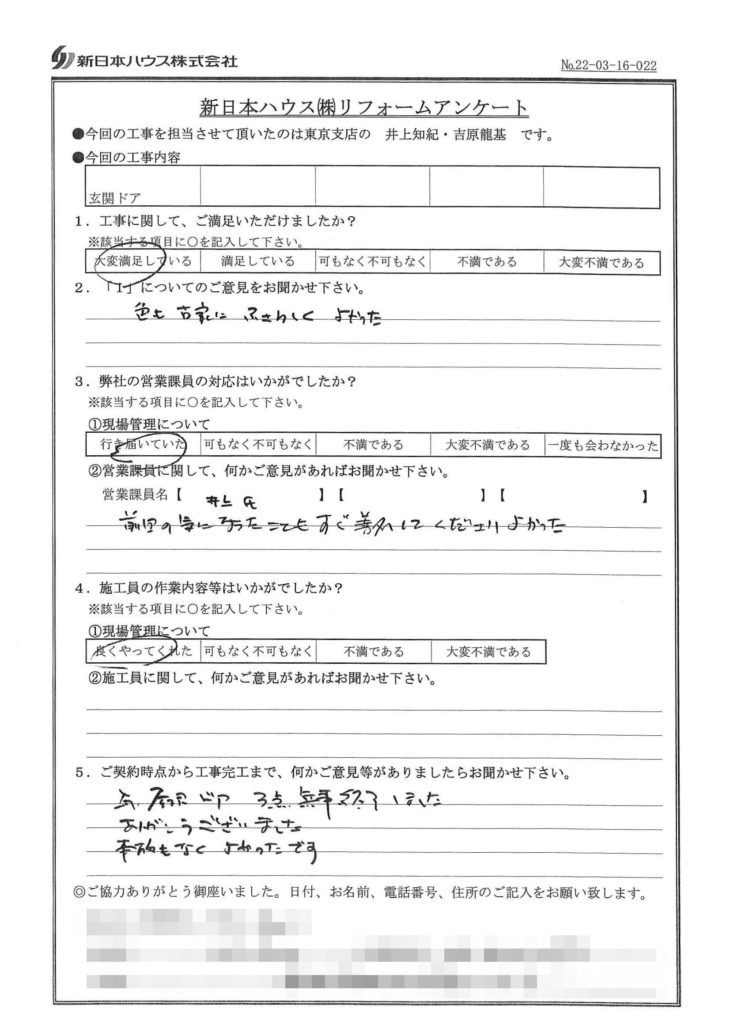 新日本ハウス株式会社
№22-03-16-022
新日本ハウス㈱リフォームアンケート
●今回の工事を担当させて頂いたのは東京支店の 井上知紀・吉原龍基 です。
●今回の工事内容
玄関ドア
1．工事に関して、ご満足いただけましたか？
※該当する項目に○を記入して下さい。
大変満足している 満足している 可もなく不可もなく 不満である 大変不満である
2．「1」についてのご意見をお聞かせ下さい。
色も古家にふさわしくよかった
3．弊社の営業課員の対応はいかがでしたか？
※該当する項目に○を記入して下さい。
①現場管理について
行き届いていた 可もなく不可もなく 不満である 大変不満である 一度も会わなかった
②営業課員に関して、何かご意見があればお聞かせ下さい。
営業課員名【 井上氏 】【 】【 】
前回の気になったこともすぐ善処してくださりよかった
4．施工員の作業内容等はいかがでしたか？
※該当する項目に○を記入して下さい。
①現場管理について
良くやってくれた 可もなく不可もなく 不満である 大変不満である
②施工員に関して、何かご意見があればお聞かせ下さい。
5．ご契約時点から工事完工まで、何かご意見等がありましたらお聞かせ下さい。
ドア 3点 無事終了しました
ありがとうございました
もなく よかったです
◎ご協力ありがとう御座いました。日付、お名前、電話番号、住所のご記入をお願い致します。